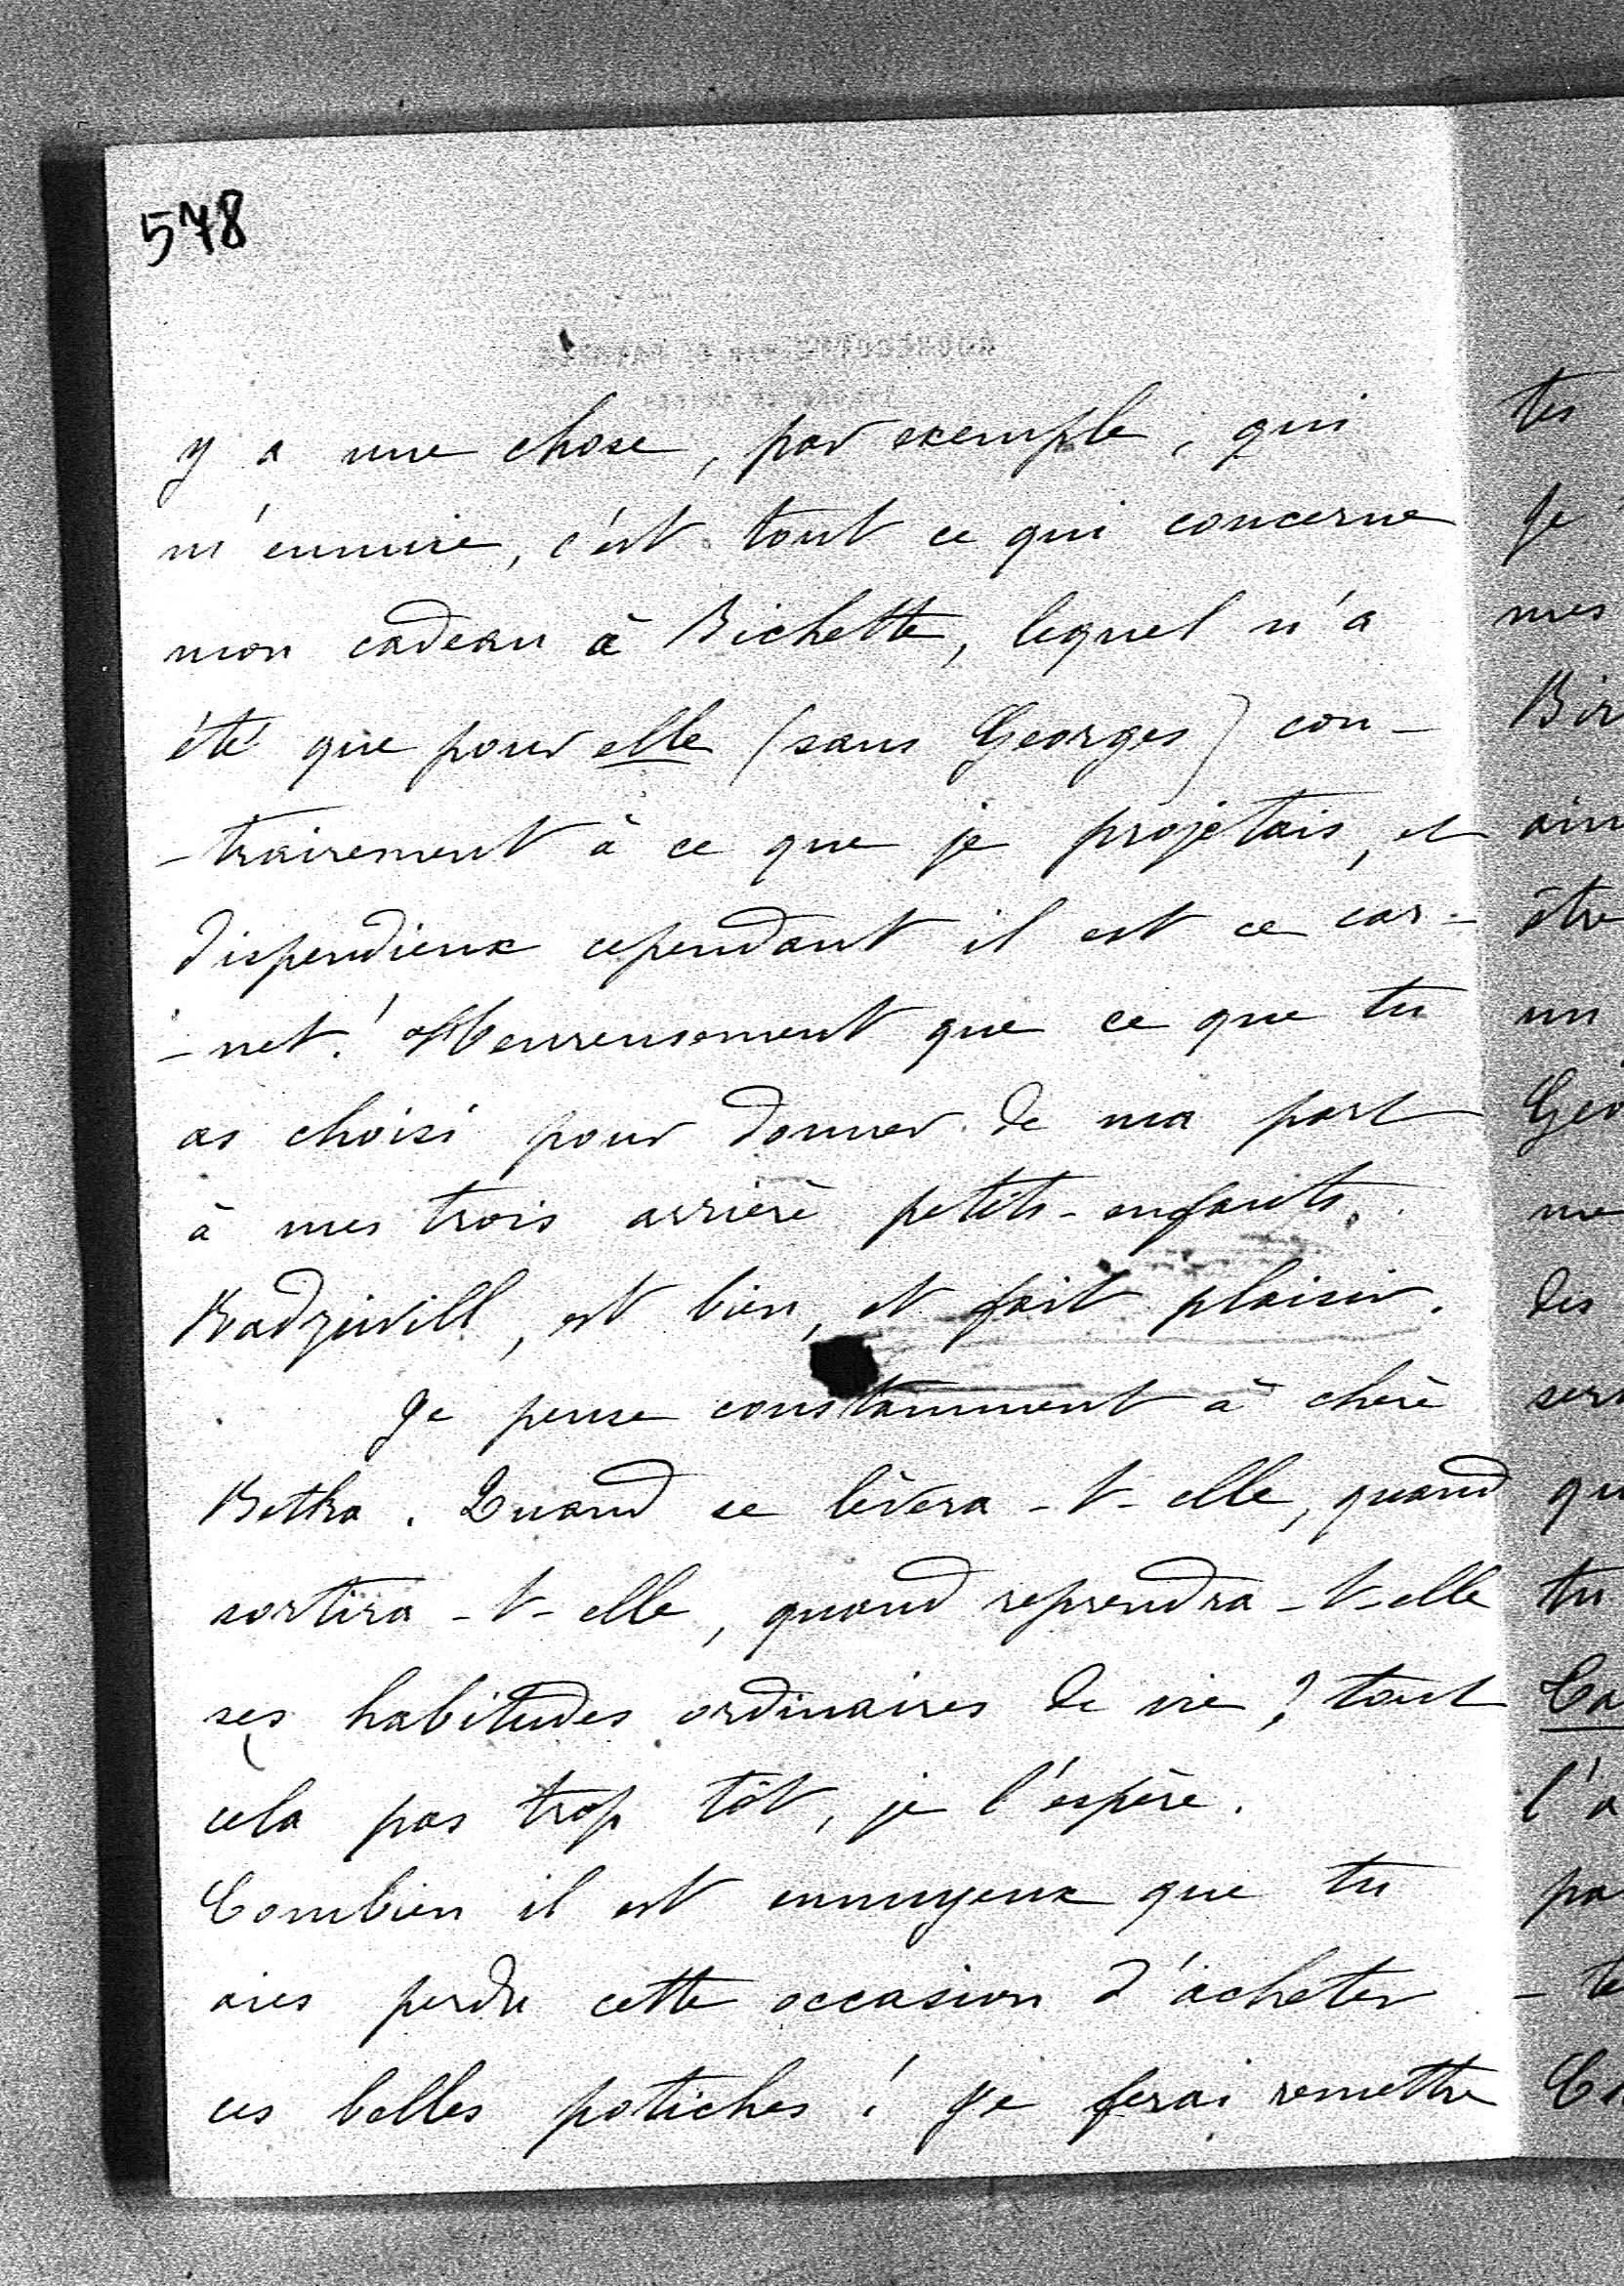 578
y a une chose, par exemple, qui
m'ennuie, c'est tout ce qui concerne
mon cadeau à Bichette, lequel n'a
été que pour elle (sans Georges) con-
-trairement à ce que je projetais, et
dispendieux cependant il est ce car-
-net! Heureusement que ce que tu
as choisi pour donner de ma part
à mes trois arrière petits-enfants
Radziwill, est bien, et fait plaisir.
Je pense constamment à chère
Betka. Quand se lèvera-t-elle, quand
sortira-t-elle, quand reprendra-t-elle
ses habitudes ordinaires de vie? tout
cela pas trop tôt, je l'espère.
Combien il est ennuyeux que tu
aies perdu cette occasion d'acheter
ces belles potiches! Je ferai remettre
tes
Je
mes
être
un
des
tu